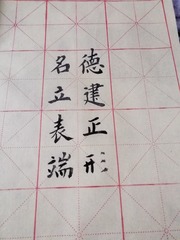 德建正形
名立表端